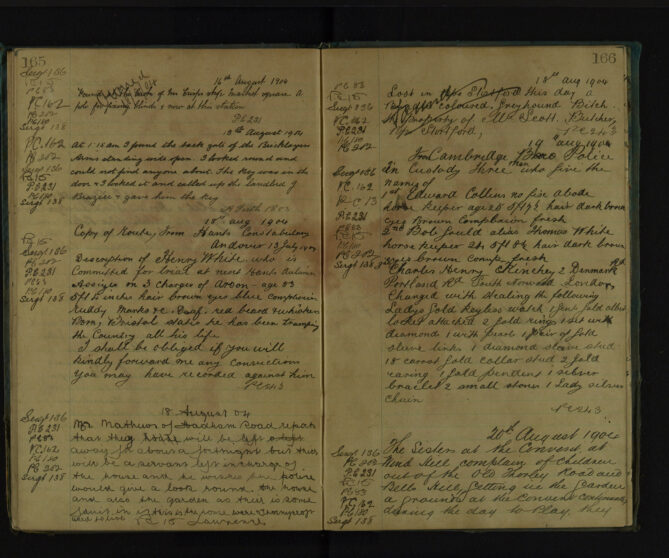 165
Sergt 136
PC 15
PC 83
PC 162
PC 202
PC 180
Sergt 138
16th August 1904
Found at the Back of Mr shop Market square A
pole for Blinds & now at this station
PC 231
18th August 1904
PC 162
PC 202
At 1.15 am I found the back gate of the Bricklayers
Arms standing wide open. I looked round and
could not find anyone about. The key was in the
door & I locked it and called up the Landlord J
Brazier & gave him the key
18th aug 1904
Copy of Route, from Hants Constabulary
Andover 13 July 1904
PC 15
Sergt 136
PC 202
PE 231
PC 83
PC 180
Sergt 138
Description of Henry White who is
Committed for trial at next Hants Autumn
Assizes on 3 Charges of Arson - age 53
5ft 5 inches hair brown eyes blue complexion
ruddy Marks &c Deaf. red beard & whiskers
Born, Bristol states he has been Tramping
the Country all his life.
I shall be obliged if you will
kindly forward me any Convictions
you may have recorded against him
PC 243
18 August 04
Sergt 136
PE 231
PC 83
PC 162
PC 180
PC 202
Sergt 138
Mr Matthews of Hadham Road reports
that they house will be left
away for about a fortnight but there
will be a servant left in charge of
the house and he wishes the police
would give a look round the house
and also the garden as there is some
fruit in it
PC 15 Lawrence
166
PC 83
PC 15
Sergt 136
PC 162
PE 231
PC 180
PC 202
18th aug 1904
Lost in Stortford this day a
coloured, Greyhound Bitch
property of Mr Scott. Butcher,
Stortford,
PC 243
19th aug 1904
From Cambridge Boro Police
Sergt 136
PC 162
PC 13
PE 231
PC 83
PC 15
PC 180
PC 202
Sergt 138
In Custody Three men who give the
names of
1st Edward Collins no fixe abode
horse keeper age 28 hair dark brown
eyes Brown Complexion fresh
2nd Bob Gould alias Thomas White
horse keeper 24 5ft 8½ hair dark brown
eyes brown comp fresh
Charles Henry 2 Denmark
Portland Rd South Norwood London,
Charged with stealing the following
Ladys Gold Keyless watch 1 gold albert
locket attached 2 gold rings 1 set with
diamond 1 with pearl 1 pair of gold
sleeve links 1 diamond stud
18 carat gold collar stud 2 gold
earring 1 gold pendent 1 silver
bracelet 2 small stones 1 Lady silver
Chain
PC 243
20th August 1904
Sergt 136
PC 202
PE 231
PC 15
PC 83
PC 162
PC 180
Sergt 138
The Sisters at the Convent, at
Wind Hill complain of Children
out of the Old Thorley Road and
Bells Hill, getting in the Garden
& grounds at the Convent continually
during the day to Play, they